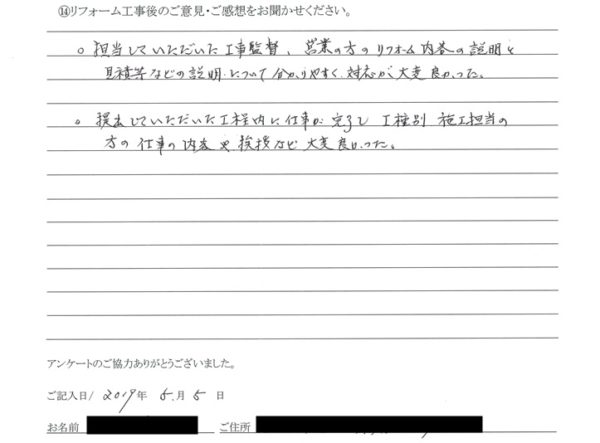 ⑭リフォーム工事後のご意見・ご感想をお聞かせください。
○ 担当していただいた工事監督、営業の方のリフォーム内容の説明と
見積等などの説明について分かりやすく対応が大変良かった。
○ 提出していただいた工程内に仕事が完了し 工種別 施工担当の
方の仕事の内容や挨拶など大変良かった。
アンケートのご協力ありがとうございました。
ご記入日/ 2019年 5月 5日
お名前 ご住所